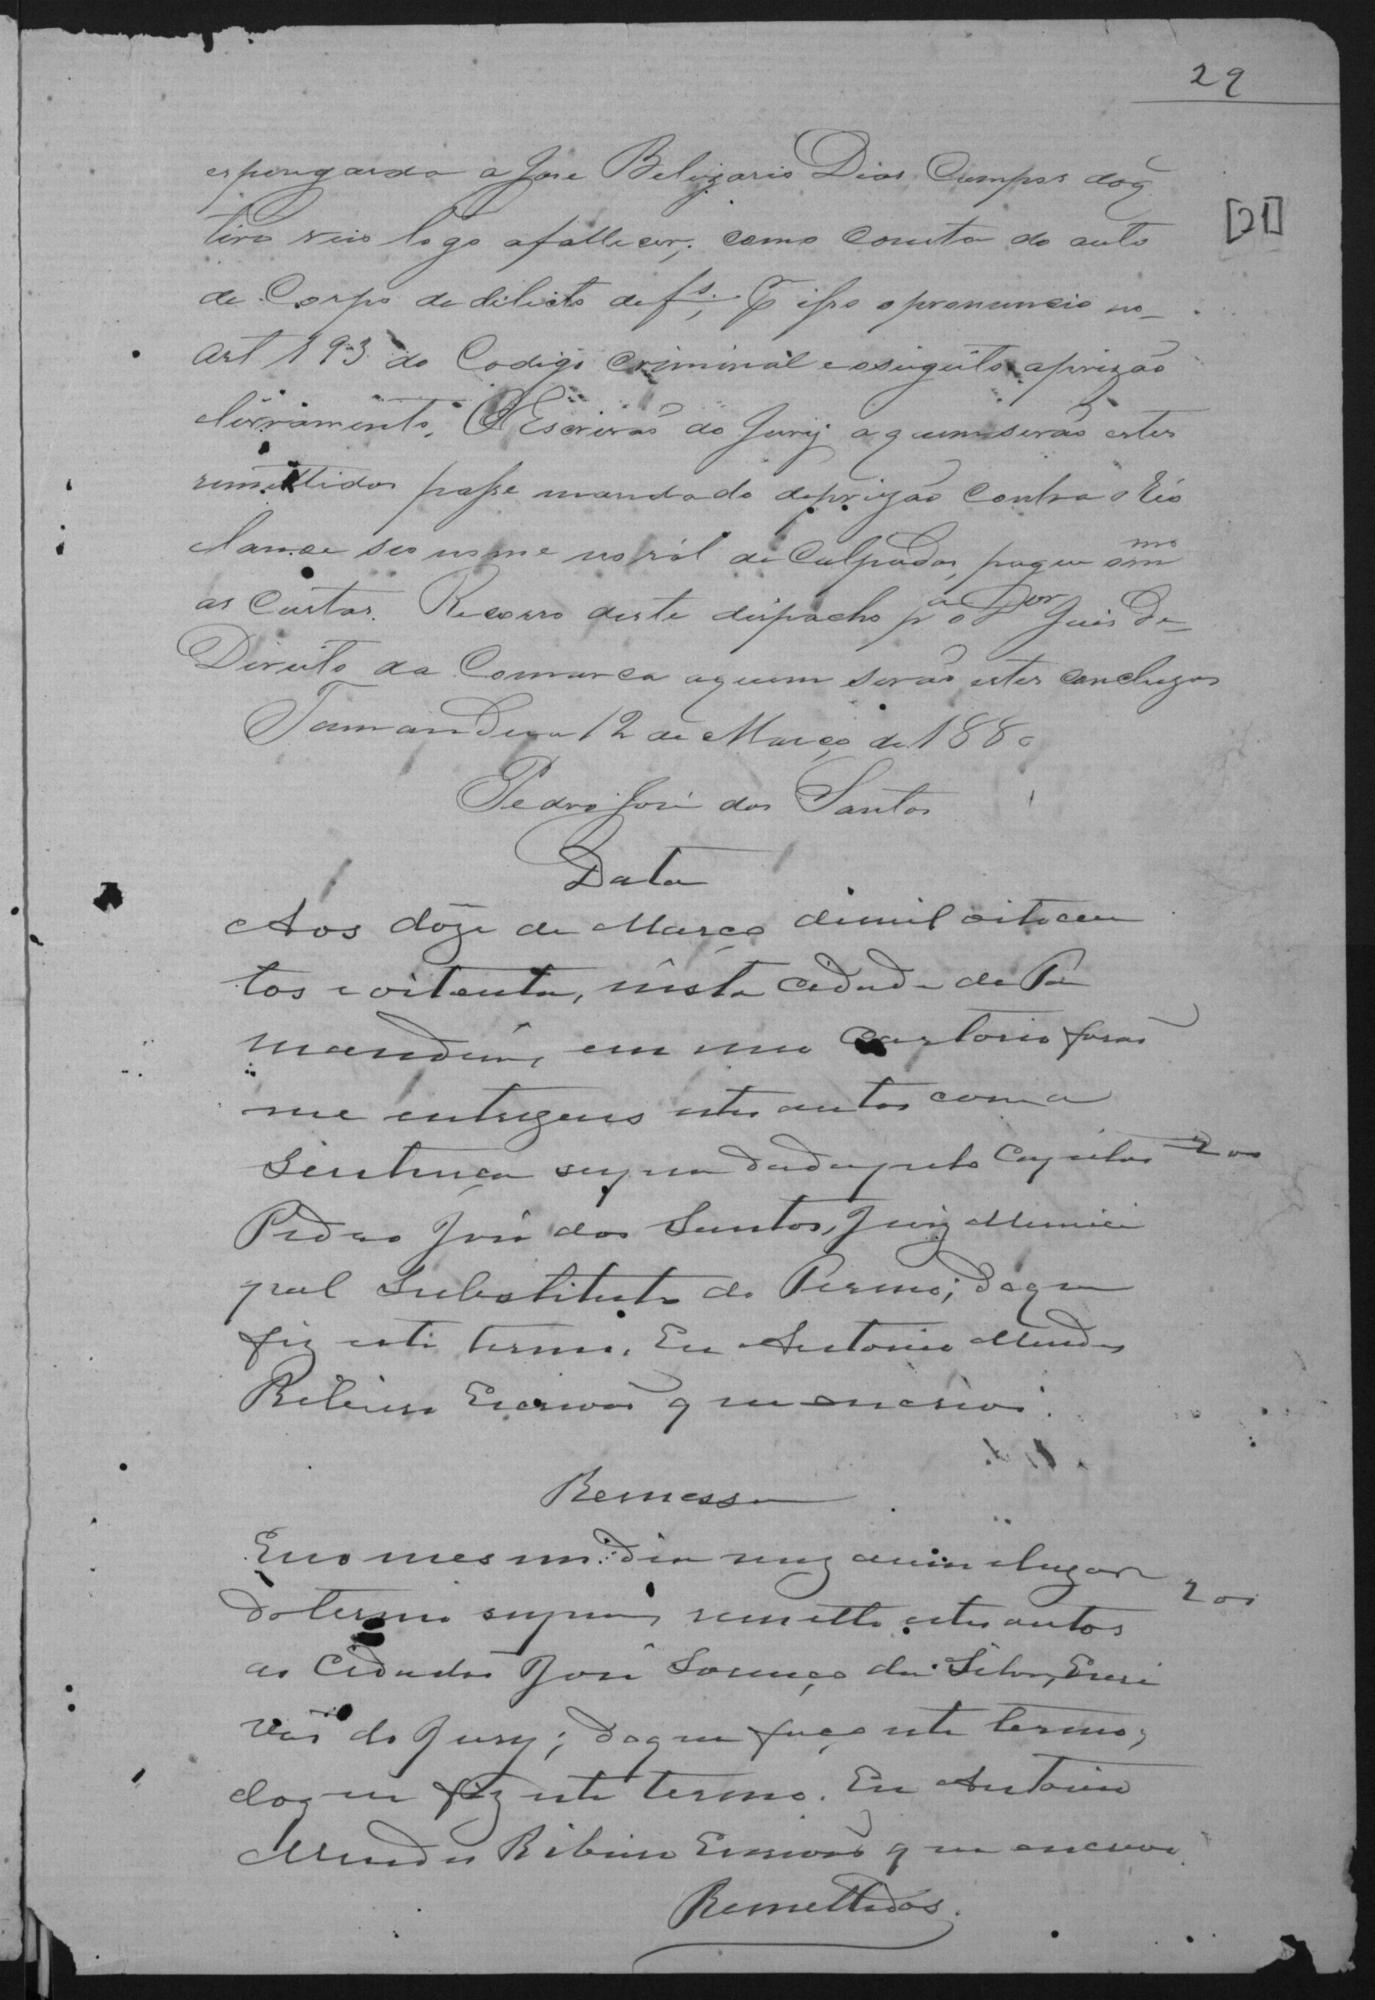 29
[21]
espengarda a Jose Belizario Dias Campos doq̃
tiro veio logo afallecer, como consta do auto
de Corpo de delicto de fs. , e isso o pronuncio no
Art 193 do Codigo criminal e osugeito aprizão
elivramento, O Escrivão do Jury aquem serão estes
remettidos passe mandado deprizão contra o Réo
lance seo nome no ról de Culpados, pague o mmo
as Custas. Recorro deste dispacho pa o Dor Juis de
Direito da Comarca aquem serão estes concluzos
Tamanduá 12 de Março de 1880
Pedro José dos Santos
Data
Aos dôze de Março demil oitocen
tos e oitenta, nésta cidade de Ta
manduá, em meu cartorio forão
me entregues estes autos com a
Sentença supra dada pelo Capitão 200
Pedro José dos Santos, Juiz Munici
pal Substituto do Termo; do que
fiz este termo. Eu Antonio Mendes
Ribeiro Escrivão que escrevi.
Remessa
E no mesmo dia mez anno e lugar
do termo supra, remetto estes autos 200
ao Cidadão José Lourenço da Silva, Escri
vão do Jury; do que faço este termo;
do que fiz este termo. Eu Antonio
Mendes Ribeiro Escrivão que escrevi.
Remettidos.